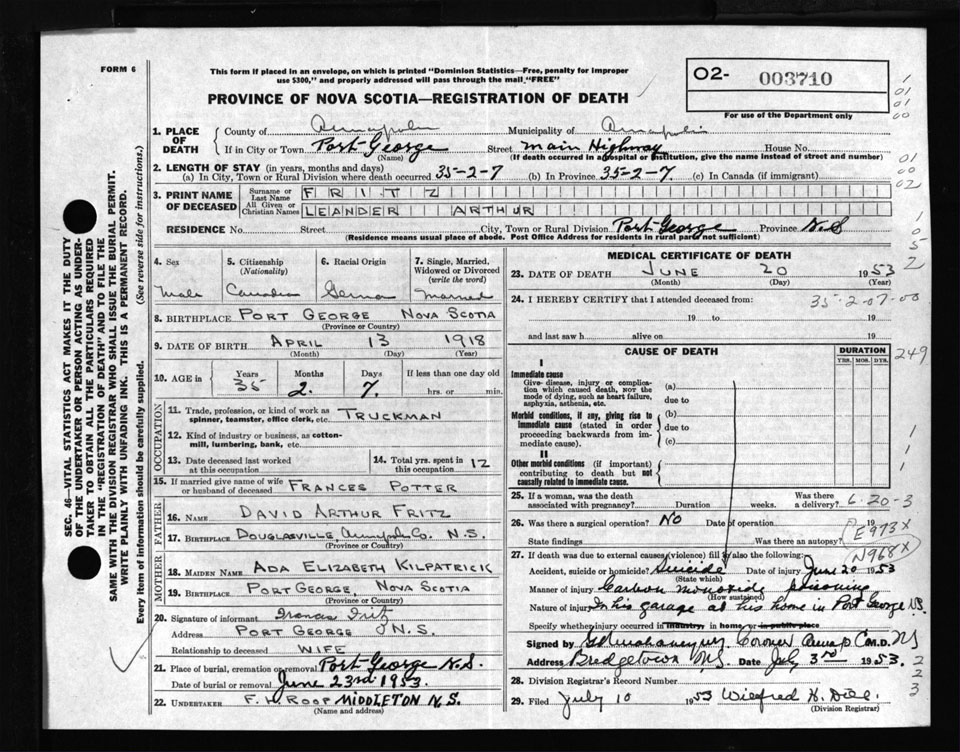 FORM 6
This form if placed in an envelope, on which is printed "Dominion Statistics—Free, penalty for improper
use $300," and properly addressed will pass through the mail "FREE"
02- 003710
For use of the Department only
PROVINCE OF NOVA SCOTIA—REGISTRATION OF DEATH
SEC. 46—VITAL STATISTICS ACT MAKES IT THE DUTY
OF THE UNDERTAKER OR PERSON ACTING AS UNDER-
TAKER TO OBTAIN ALL THE PARTICULARS REQUIRED
IN THE "REGISTRATION OF DEATH" AND TO FILE THE
SAME WITH THE DIVISION REGISTRAR WHO SHALL ISSUE THE BURIAL PERMIT.
WRITE PLAINLY WITH UNFADING INK. THIS IS A PERMANENT RECORD.
Every item of information should be carefully supplied. (See reverse side for instructions.)
1. PLACE OF DEATH
County of Annapolis Municipality of Annapolis
If in City or Town Port George Street Main Highway House No.
(Name) (If death occurred in a hospital or institution, give the name instead of street and number)
2. LENGTH OF STAY (in years, months and days)
(a) In City, Town or Rural Division where death occurred 35-2-7 (b) In Province 35-2-7 (c) In Canada (if immigrant)
3. PRINT NAME OF DECEASED
Surname or Last Name FRITZ
All Given or Christian Names LEANDER ARTHUR
RESIDENCE No. Street City, Town or Rural Division Port George Province N.S
(Residence means usual place of abode. Post Office Address for residents in rural parts not sufficient)
4. Sex 5. Citizenship (Nationality) 6. Racial Origin 7. Single, Married, Widowed or Divorced (write the word)
Male Canadian German Married
8. BIRTHPLACE PORT GEORGE NOVA SCOTIA
(Province or Country)
9. DATE OF BIRTH APRIL 13 1918
(Month) (Day) (Year)
10. AGE in Years Months Days If less than one day old
35 2. 7. hrs. or min.
OCCUPATION
11. Trade, profession, or kind of work as
spinner, teamster, office clerk, etc. TRUCKMAN
12. Kind of industry or business, as cotton-
mill, lumbering, bank, etc.
13. Date deceased last worked
at this occupation
14. Total yrs. spent in
this occupation 12
15. If married give name of wife
or husband of deceased FRANCES POTTER
FATHER
16. NAME DAVID ARTHUR FRITZ
17. BIRTHPLACE DOUGLASVILLE, Annapolis Co. N.S.
(Province or Country)
MOTHER
18. MAIDEN NAME ADA ELIZABETH KILPATRICK
19. BIRTHPLACE PORT GEORGE, NOVA SCOTIA
(Province or Country)
20. Signature of informant Frances Fritz
Address PORT GEORGE N.S.
Relationship to deceased WIFE
21. Place of burial, cremation or removal Port George N.S.
Date of burial or removal June 23rd 1953.
22. UNDERTAKER F. H. ROOP MIDDLETON N.S.
(Name and address)
MEDICAL CERTIFICATE OF DEATH
23. DATE OF DEATH JUNE 20 1953
(Month) (Day) (Year)
24. I HEREBY CERTIFY that I attended deceased from:
35-2-07-00
19 to 19
and last saw h alive on 19
CAUSE OF DEATH DURATION
YRS. MOS. DYS.
249
I
Immediate cause
Give disease, injury or complica-
tion which caused death, NOT the
mode of dying, such as heart failure,
asphyxia, asthenia, etc.
(a)
due to
Morbid conditions, if any, giving rise to
immediate cause (stated in order
proceeding backwards from im-
mediate cause).
(b)
due to
(c)
II
Other morbid conditions (if important)
contributing to death but not
causally related to immediate cause.
25. If a woman, was the death
associated with pregnancy? Duration weeks. Was there
a delivery? 6-20-3
26. Was there a surgical operation? NO Date of operation 19
State findings Was there an autopsy?
E973X
N968X
27. If death was due to external causes (violence) fill in also the following:
Accident, suicide or homicide? Suicide Date of injury June 20 1953
(State which)
Manner of injury Carbon monoxide poisoning
(How sustained)
Nature of injury In his garage at his home in Port George N.S.
Specify whether injury occurred in industry in home or in public place
Signed by Coroner Annap Co. N.S
Address Bridgetown N.S. Date July 3rd 1953.
28. Division Registrar's Record Number
29. Filed July 10 1953 Wilfred H.
(Division Registrar)